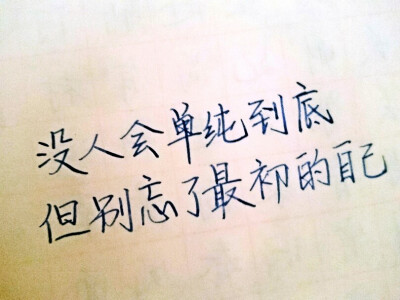 没人会单纯到底
但别忘了最初的自己